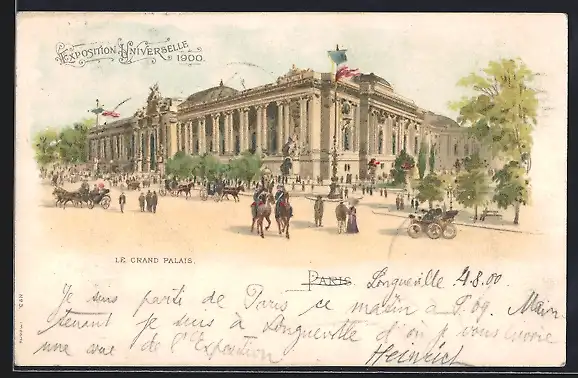 EXPOSITION UNIVERSELLE
1900.
LE GRAND PALAIS.
PARIS Longueville 4.8.00
Je suis parti de Paris ce matin à 7.09. Main
tenant je suis à Longueville d'où je vous envoie
une vue de l'Exposition
Heinrich